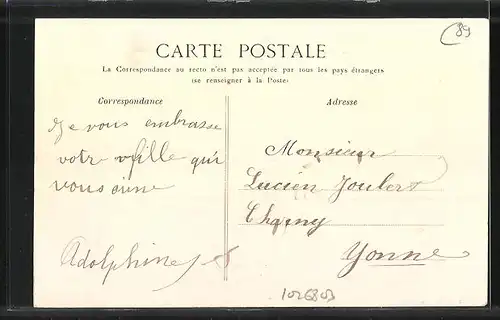 (89
CARTE POSTALE
La Correspondance au recto n'est pas acceptée par tous les pays étrangers
(se renseigner à la Poste)
Correspondance
Adresse
Je vous embrasse
votre fille qui
vous aime
Adolphine
Monsieur
Lucien Joubert
Charny
Yonne
1026803